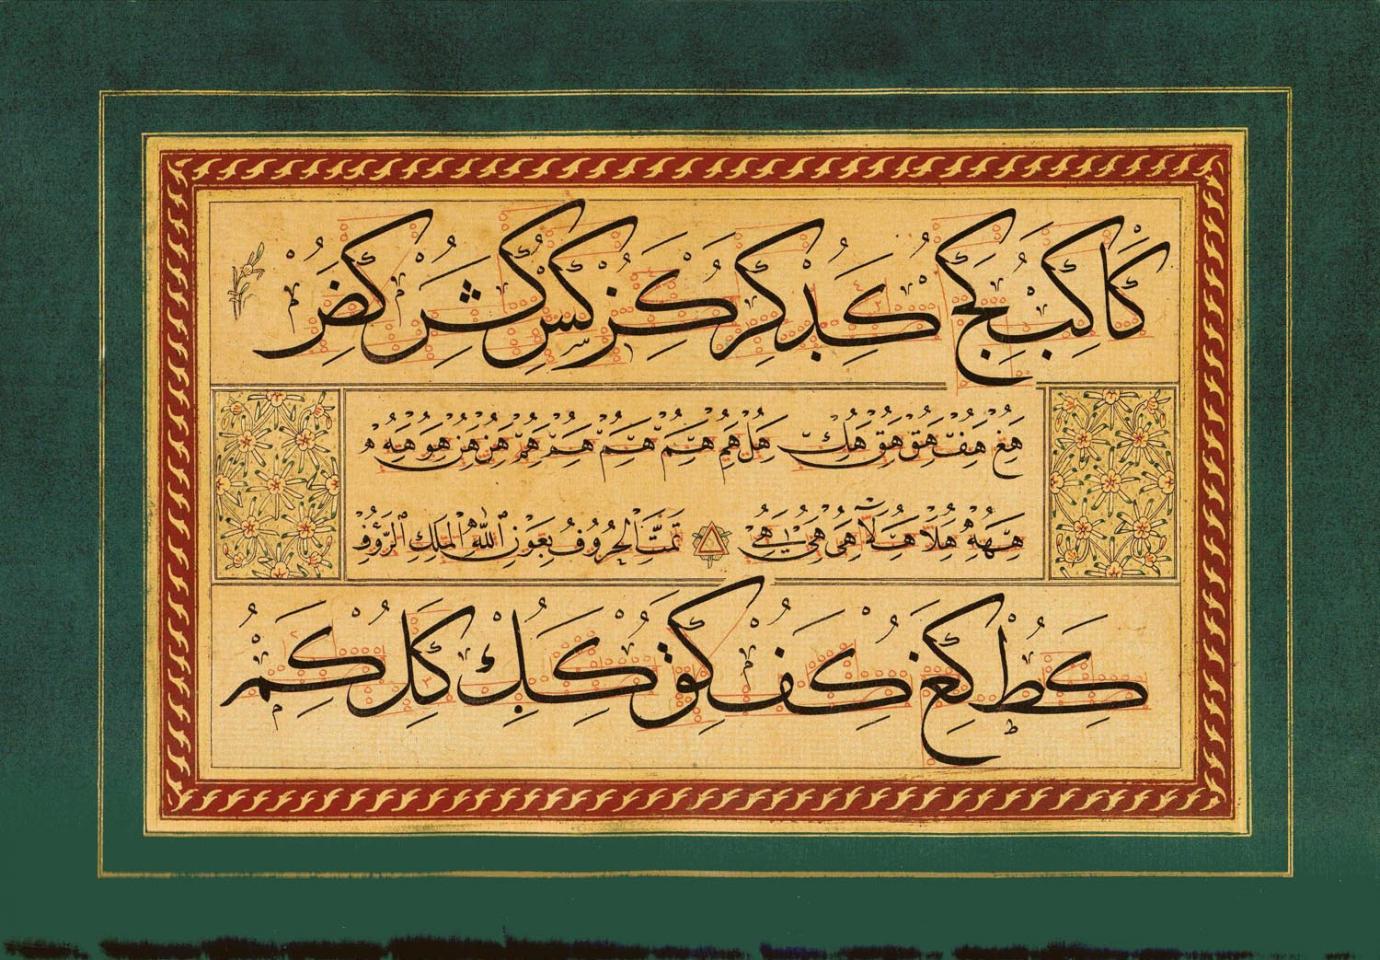 كا كب كج كد كر كز كس كش كض
هغ هف هق هق هك هل هم هم هم هم هم هن هن هو هه
ههه هلا هلا هى هى هى تمت الحروف بعون الله الملك الرؤف
كط كغ كف كق كك كل كم